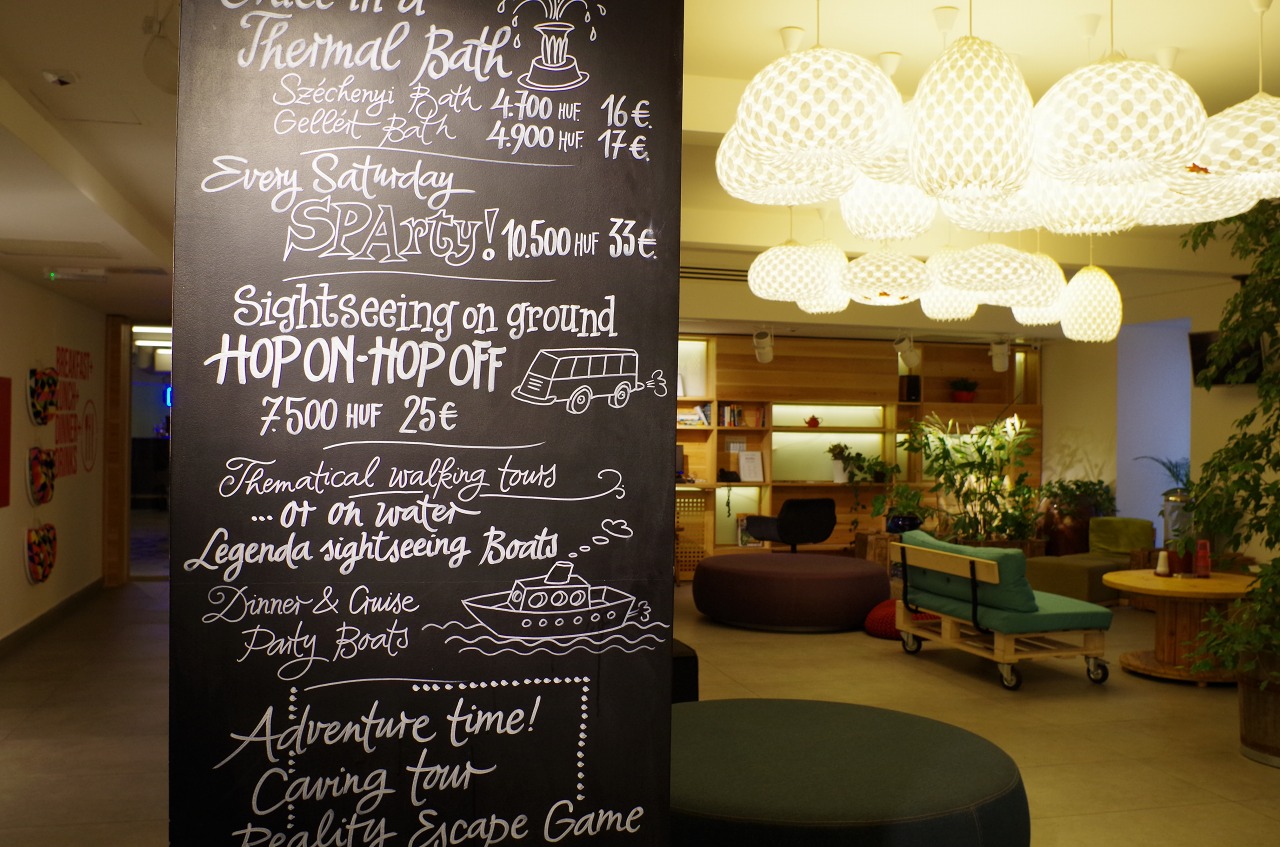 in a
Thermal Bath
Széchenyi Bath 4.700 HUF 16 €.
Gellért Bath 4.900 HUF. 17 €.
Every Saturday
SPArty! 10.500 HUF 33 €.
Sightseeing on ground
HOP ON-HOP OFF
7.500 HUF 25 €
Thematical walking tours
...or on water
Legenda sightseeing Boats
Dinner & Cruise
Party Boats
Adventure time!
Caving tour
Reality Escape Game
BREAKFAST+
LUNCH+
DINNER+
DRINKS